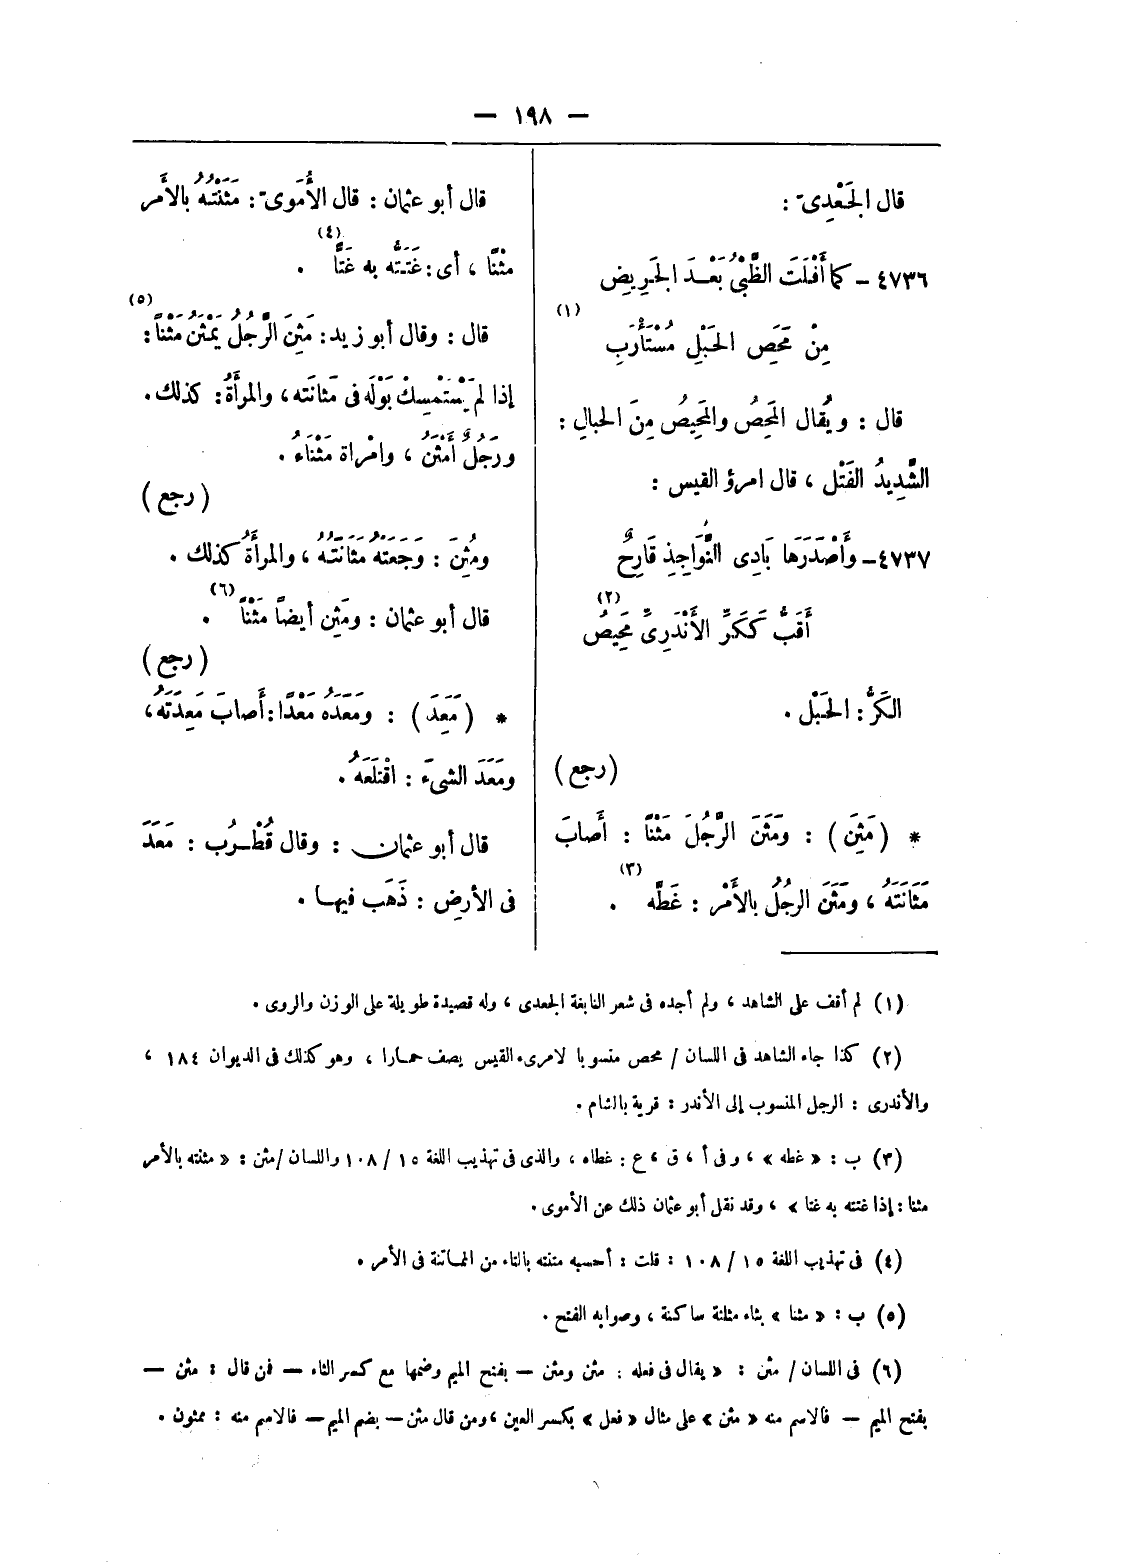 — ١٩٨ —
قال الجَعْدِىّ :
٤٧٣٦ – كما أَفْلَتَ الظَّبْىُ بَعْدَ الجَرِيضِ
مِنْ مَحَصِ الحَبْلِ مُسْتَأْرَبِ (١)
قال : ويُقال المَحِصُ والمَحِيصُ مِنَ الحبالِ :
الشَّدِيدُ الفَتْل ، قال امرؤ القيس :
٤٧٣٧ – وأَصْدَرَها بَادِى النَّواجِذِ قَارِحٌ
أَقَبُّ كَكَرِّ الأَنْدَرِىِّ مَحِيصُ (٢)
الكَرُّ : الحَبْل .
(رجع)
* (مَثِنَ) : ومَثَنَ الرَّجُلَ مَثْنًا : أَصابَ
مَثَانَتَهُ ، ومَثَنَ الرجُلُ بالأَمْرِ : غَطَّه (٣) .
قال أبو عثمان : قال الأُمَوىّ : مَثَنْتُهُ بالأَمر
مثْنًا ، أى : غَتَتُّه به غَتًّا (٤) .
قال : وقال أبو زيد : مَثِنَ الرَّجُلُ يَمْثَن مَثَنًا (٥) :
إذا لم يَسْتَمْسِكْ بَوْلَه فى مَثانَته ، والمرأَةُ : كذلك .
ورَجُلٌ أَمْثَنُ ، وامْراة مَثْنَاءُ .
(رجع)
ومُثِنَ : وَجَعَتْهُ مثَانَتُهُ ، والمرأَةُ كذلك .
قال أبو عثمان : ومَثِن أيضاً مَثْنًا (٦) .
(رجع)
* (مَعِدَ) : ومَعَدَهُ مَعْدًا : أَصابَ مَعِدَتَهُ ،
ومَعَدَ الشىءَ : اقْتَلَعَهُ .
قال أبو عثمان : وقال قُطْرُب : مَعَدَ
فى الأرضِ : ذَهَب فيها .
(١) لم أقف على الشاهد ، ولم أجده فى شعر النابغة الجعدى ، وله قصيدة طويلة على الوزن والروى .
(٢) كذا جاء الشاهد فى اللسان / محص منسوبا لامرىء القيس يصف حمارا ، وهو كذلك فى الديوان ١٨٤ ،
والأندرى : الرجل المنسوب إلى الأندر : قرية بالشام .
(٣) ب : « غطه » ، وفى أ ، ق ، ع : غطاه ، والذى فى تهذيب اللغة ١٥ / ١٠٨ واللسان / مثن : « مثنته بالأمر
مثنا : إذا غتته به غتا » ، وقد نقل أبو عثمان ذلك عن الأموى .
(٤) فى تهذيب اللغة ١٥ / ١٠٨ : قلت : أحسبه متنته بالتاء من المماتنة فى الأمر .
(٥) ب : « مثنا » بثاء مثلثة ساكنة ، وصوابه الفتح .
(٦) فى اللسان / مثن : « يقال فى فعله : مثن ومثن — بفتح الميم وضمها مع كسر الثاء — فمن قال : مثن —
بفتح الميم — فالاسم منه « مثن » على مثال « فعل » بكسر العين ، ومن قال مثن — بضم الميم — فالاسم منه : ممثون .